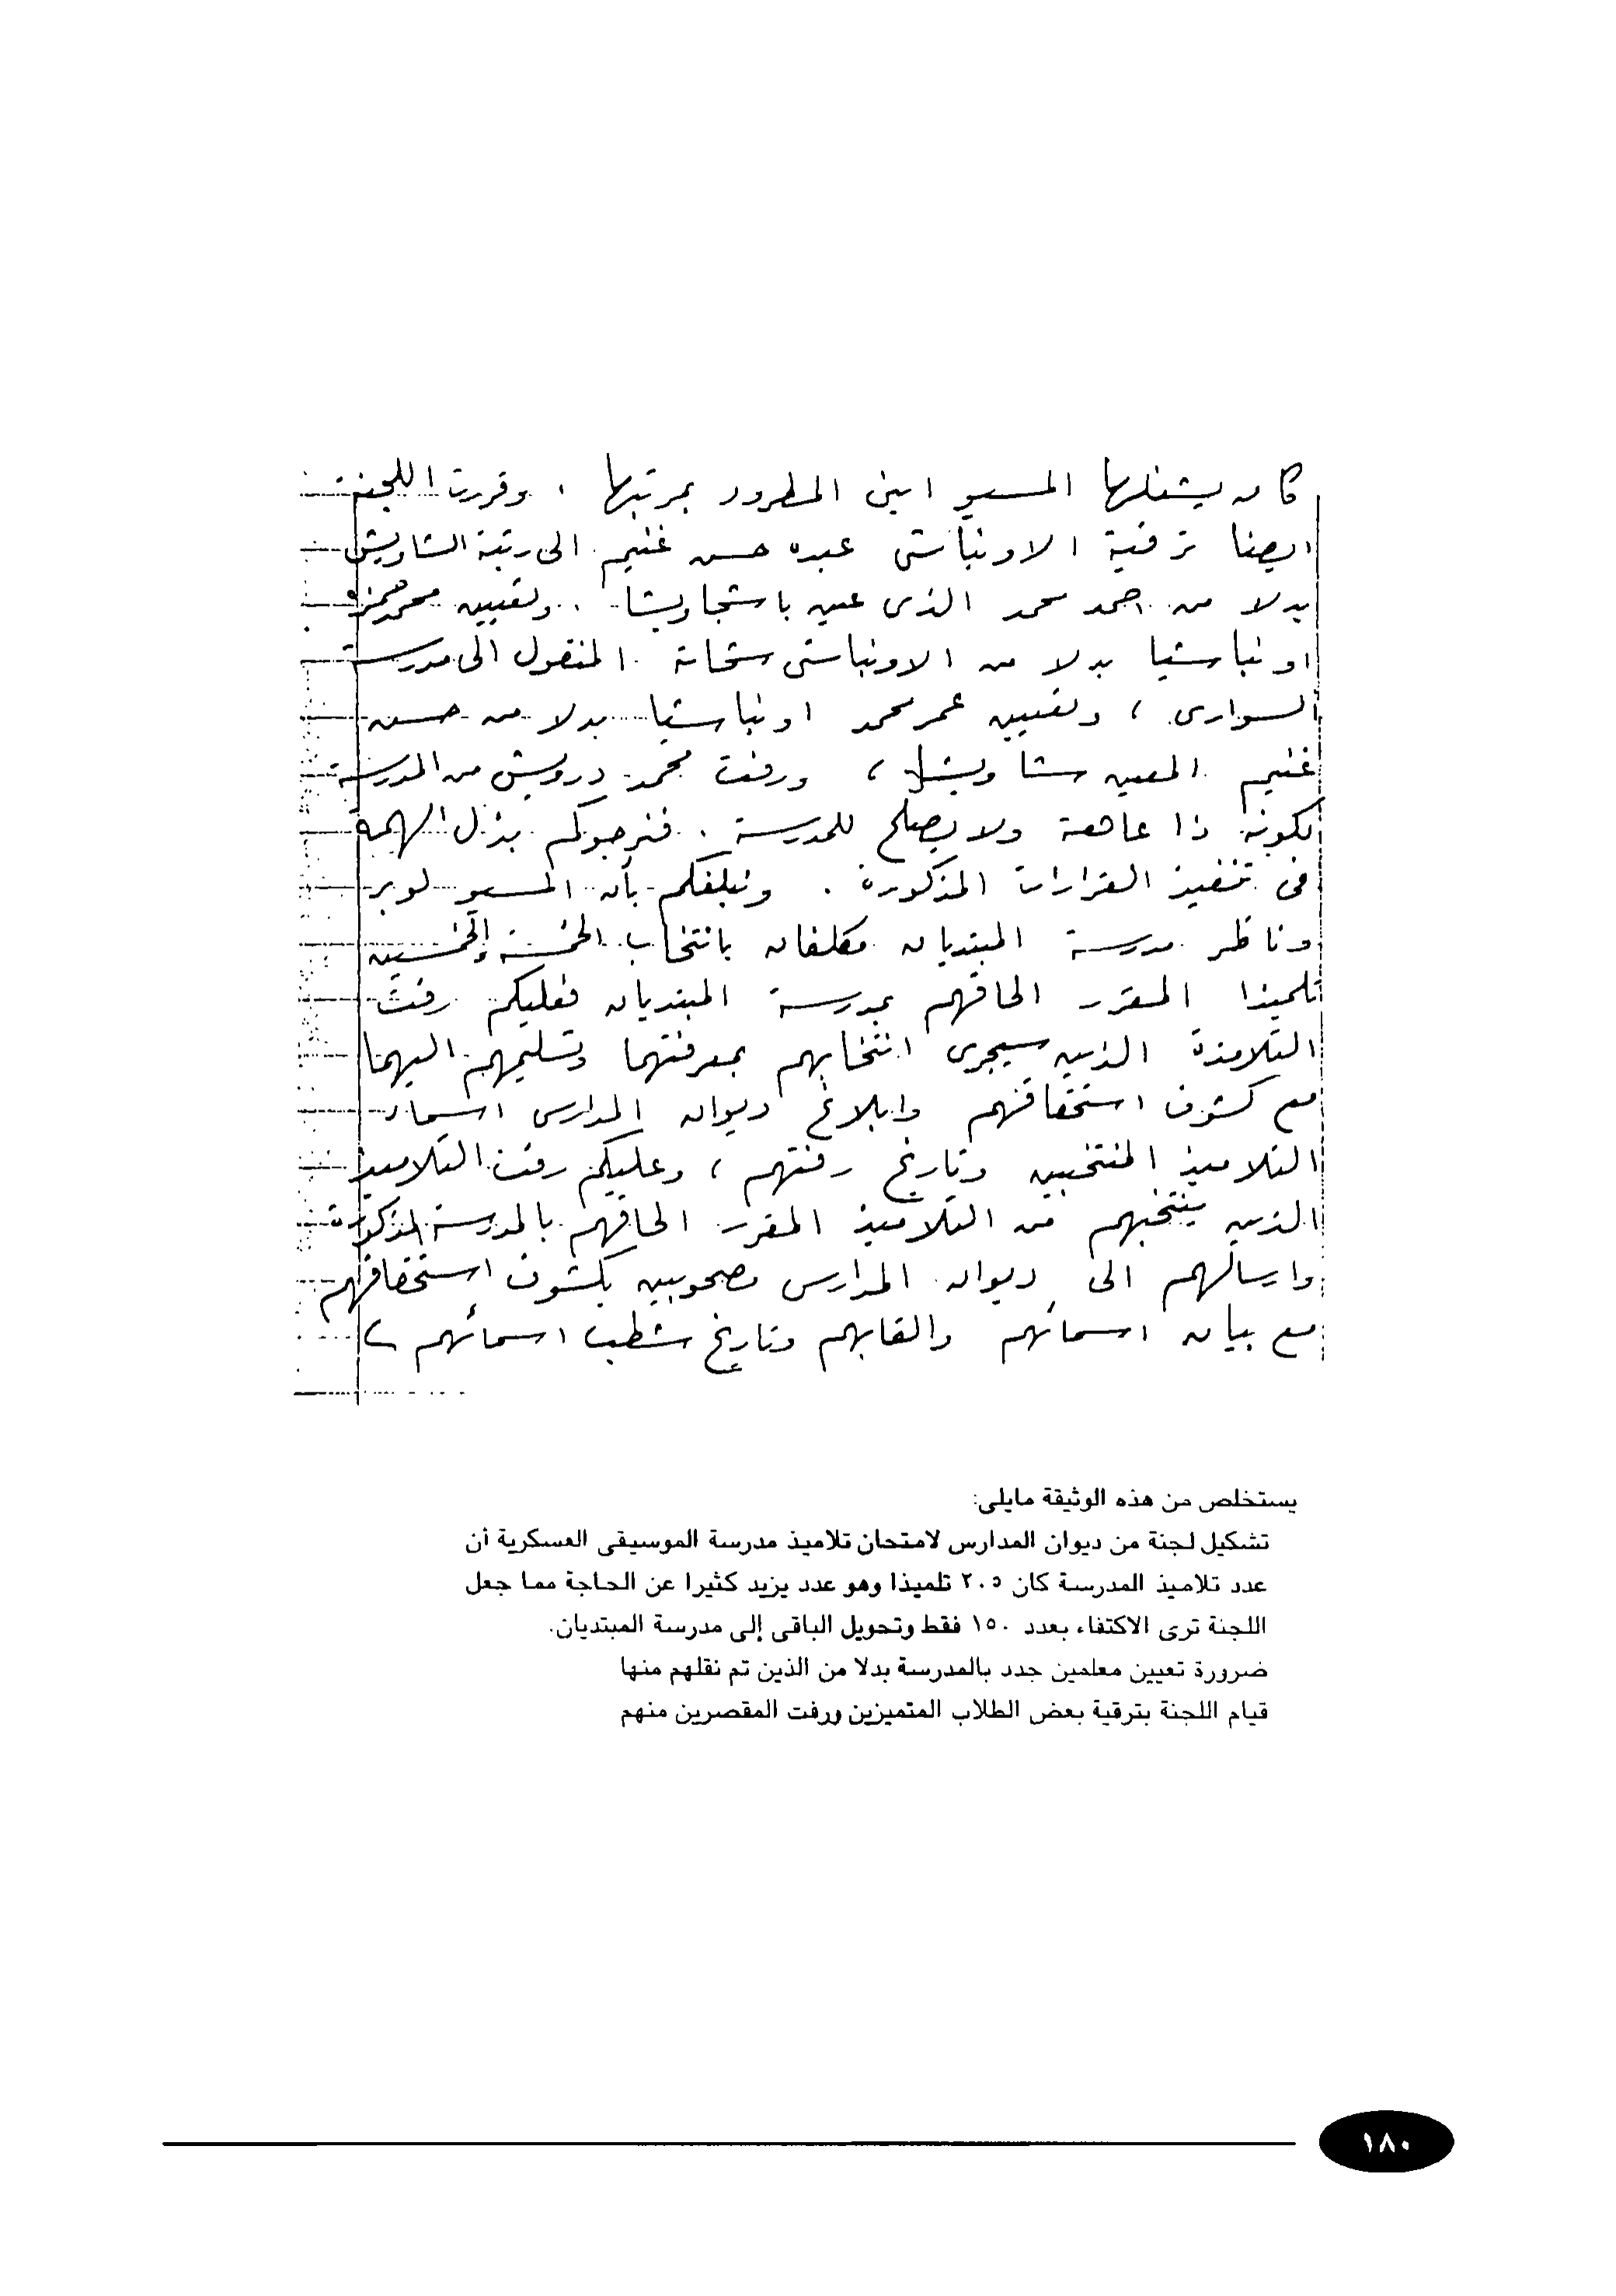 كان يشغلها المسيو ابين المطرود بمرتبها . وقررت اللجنة
ايضا ترقية الاونباشى عبده حسن غنيم الى رتبة الشاويش
بدلا من احمد محمد الذى عين باشجاويشا . وتعيين محمد حمزه
اونباشيا بدلا من الاونباشى شحاتة المنقول الى مدرسة
السوارى ، وتعيين عمر محمد اونباشيا بدلا من حسن
غنيم المعين شاويشا ، ورفت محمد درويش من المدرسة
لكونه ذا عاهة ولا يصلح للمدرسة . فنرجوكم بذل الهمة
فى تنفيذ القرارات المذكورة . ونبلغكم بأن المسيو لوبر
وناظر مدرسة المبتديان مكلفان بانتخاب الخمسة والخمسين
تلميذا المقرر الحاقهم بمدرسة المبتديان فعليكم رفت
التلامذة الذين سيجرى انتخابهم بمعرفتهما وتسليمهم اليهما
مع كشوف استحقاقهم وابلاغ ديوان المدارس اسماء
التلاميذ المنتخبين وتاريخ رفتهم ، وعليكم رفت التلاميذ
الذين ينتخبهم من التلاميذ المقرر الحاقهم بالمدرسة المذكورة
وارسالهم الى ديوان المدارس مصحوبين بكشوف استحقاقهم
مع بيان اسمائهم والقابهم وتاريخ شطب اسمائهم
يستخلص من هذه الوثيقة مايلى:
تشكيل لجنة من ديوان المدارس لامتحان تلاميذ مدرسة الموسيقى العسكرية أن
عدد تلاميذ المدرسة كان ٢٠٥ تلميذا وهو عدد يزيد كثيرا عن الحاجة مما جعل
اللجنة ترى الاكتفاء بعدد ١٥٠ فقط وتحويل الباقى إلى مدرسة المبتديان.
ضرورة تعيين معلمين جدد بالمدرسة بدلا من الذين تم نقلهم منها
قيام اللجنة بترقية بعض الطلاب المتميزين ورفت المقصرين منهم
١٨٠